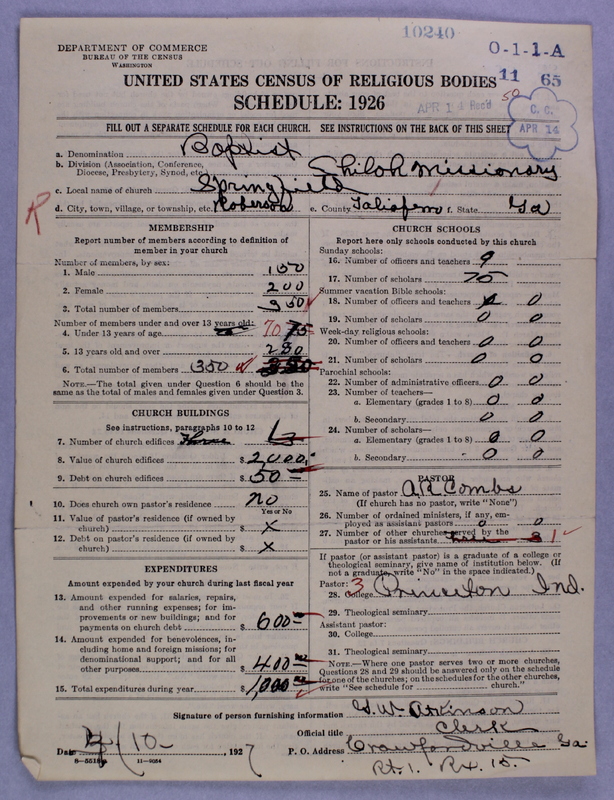 10240
DEPARTMENT OF COMMERCE
BUREAU OF THE CENSUS
WASHINGTON
O-1-1-A
UNITED STATES CENSUS OF RELIGIOUS BODIES 11 65
SCHEDULE: 1926
APR 14 Rec'd 50
C. C. APR 14
FILL OUT A SEPARATE SCHEDULE FOR EACH CHURCH. SEE INSTRUCTIONS ON THE BACK OF THIS SHEET
a. Denomination Baptist
b. Division (Association, Conference, Diocese, Presbytery, Synod, etc.) Shiloh Missionary
c. Local name of church Springfield
d. City, town, village, or township, etc. Roberson e. County Taliaferro f. State Ga
R
MEMBERSHIP
Report number of members according to definition of member in your church
Number of members, by sex:
1. Male 150
2. Female 200
3. Total number of members 350
Number of members under and over 13 years old:
4. Under 13 years of age 70 75
5. 13 years old and over 280
6. Total number of members (350
NOTE.—The total given under Question 6 should be the same as the total of males and females given under Question 3.
CHURCH BUILDINGS
See instructions, paragraphs 10 to 12
7. Number of church edifices
8. Value of church edifices $ 2000.
9. Debt on church edifices $ 50
10. Does church own pastor's residence no
Yes or No
11. Value of pastor's residence (if owned by church) $ X
12. Debt on pastor's residence (if owned by church) $ X
EXPENDITURES
Amount expended by your church during last fiscal year
13. Amount expended for salaries, repairs, and other running expenses; for improvements or new buildings; and for payments on church debt $ 600
14. Amount expended for benevolences, including home and foreign missions; for denominational support; and for all other purposes $ 400
15. Total expenditures during year $ 1,000
CHURCH SCHOOLS
Report here only schools conducted by this church
Sunday schools:
16. Number of officers and teachers 9
17. Number of scholars 75
Summer vacation Bible schools:
18. Number of officers and teachers 0
19. Number of scholars 0 0
Week-day religious schools:
20. Number of officers and teachers 0 0
21. Number of scholars 0 0
Parochial schools:
22. Number of administrative officers 0 0
23. Number of teachers—
a. Elementary (grades 1 to 8) 0 0
b. Secondary 0 0
24. Number of scholars—
a. Elementary (grades 1 to 8) 0 0
b. Secondary 0 0
PASTOR
25. Name of pastor A R Combs
(If church has no pastor, write "None")
26. Number of ordained ministers, if any, employed as assistant pastors 0 0
27. Number of other churches served by the pastor or his assistants 3 1
If pastor (or assistant pastor) is a graduate of a college or theological seminary, give name of institution below. (If not a graduate, write "No" in the space indicated.)
Pastor: 3
28. College Princeton Ind.
29. Theological seminary
Assistant pastor:
30. College
31. Theological seminary
NOTE.—Where one pastor serves two or more churches, Questions 28 and 29 should be answered only on the schedule for one of the churches; on the schedules for the other churches, write "See schedule for church."
Signature of person furnishing information G. W. Atkinson
Official title Clerk
Date /10- , 1927
P. O. Address Crawfordville Ga
Rt. 1. Bx. 15.
11—9034